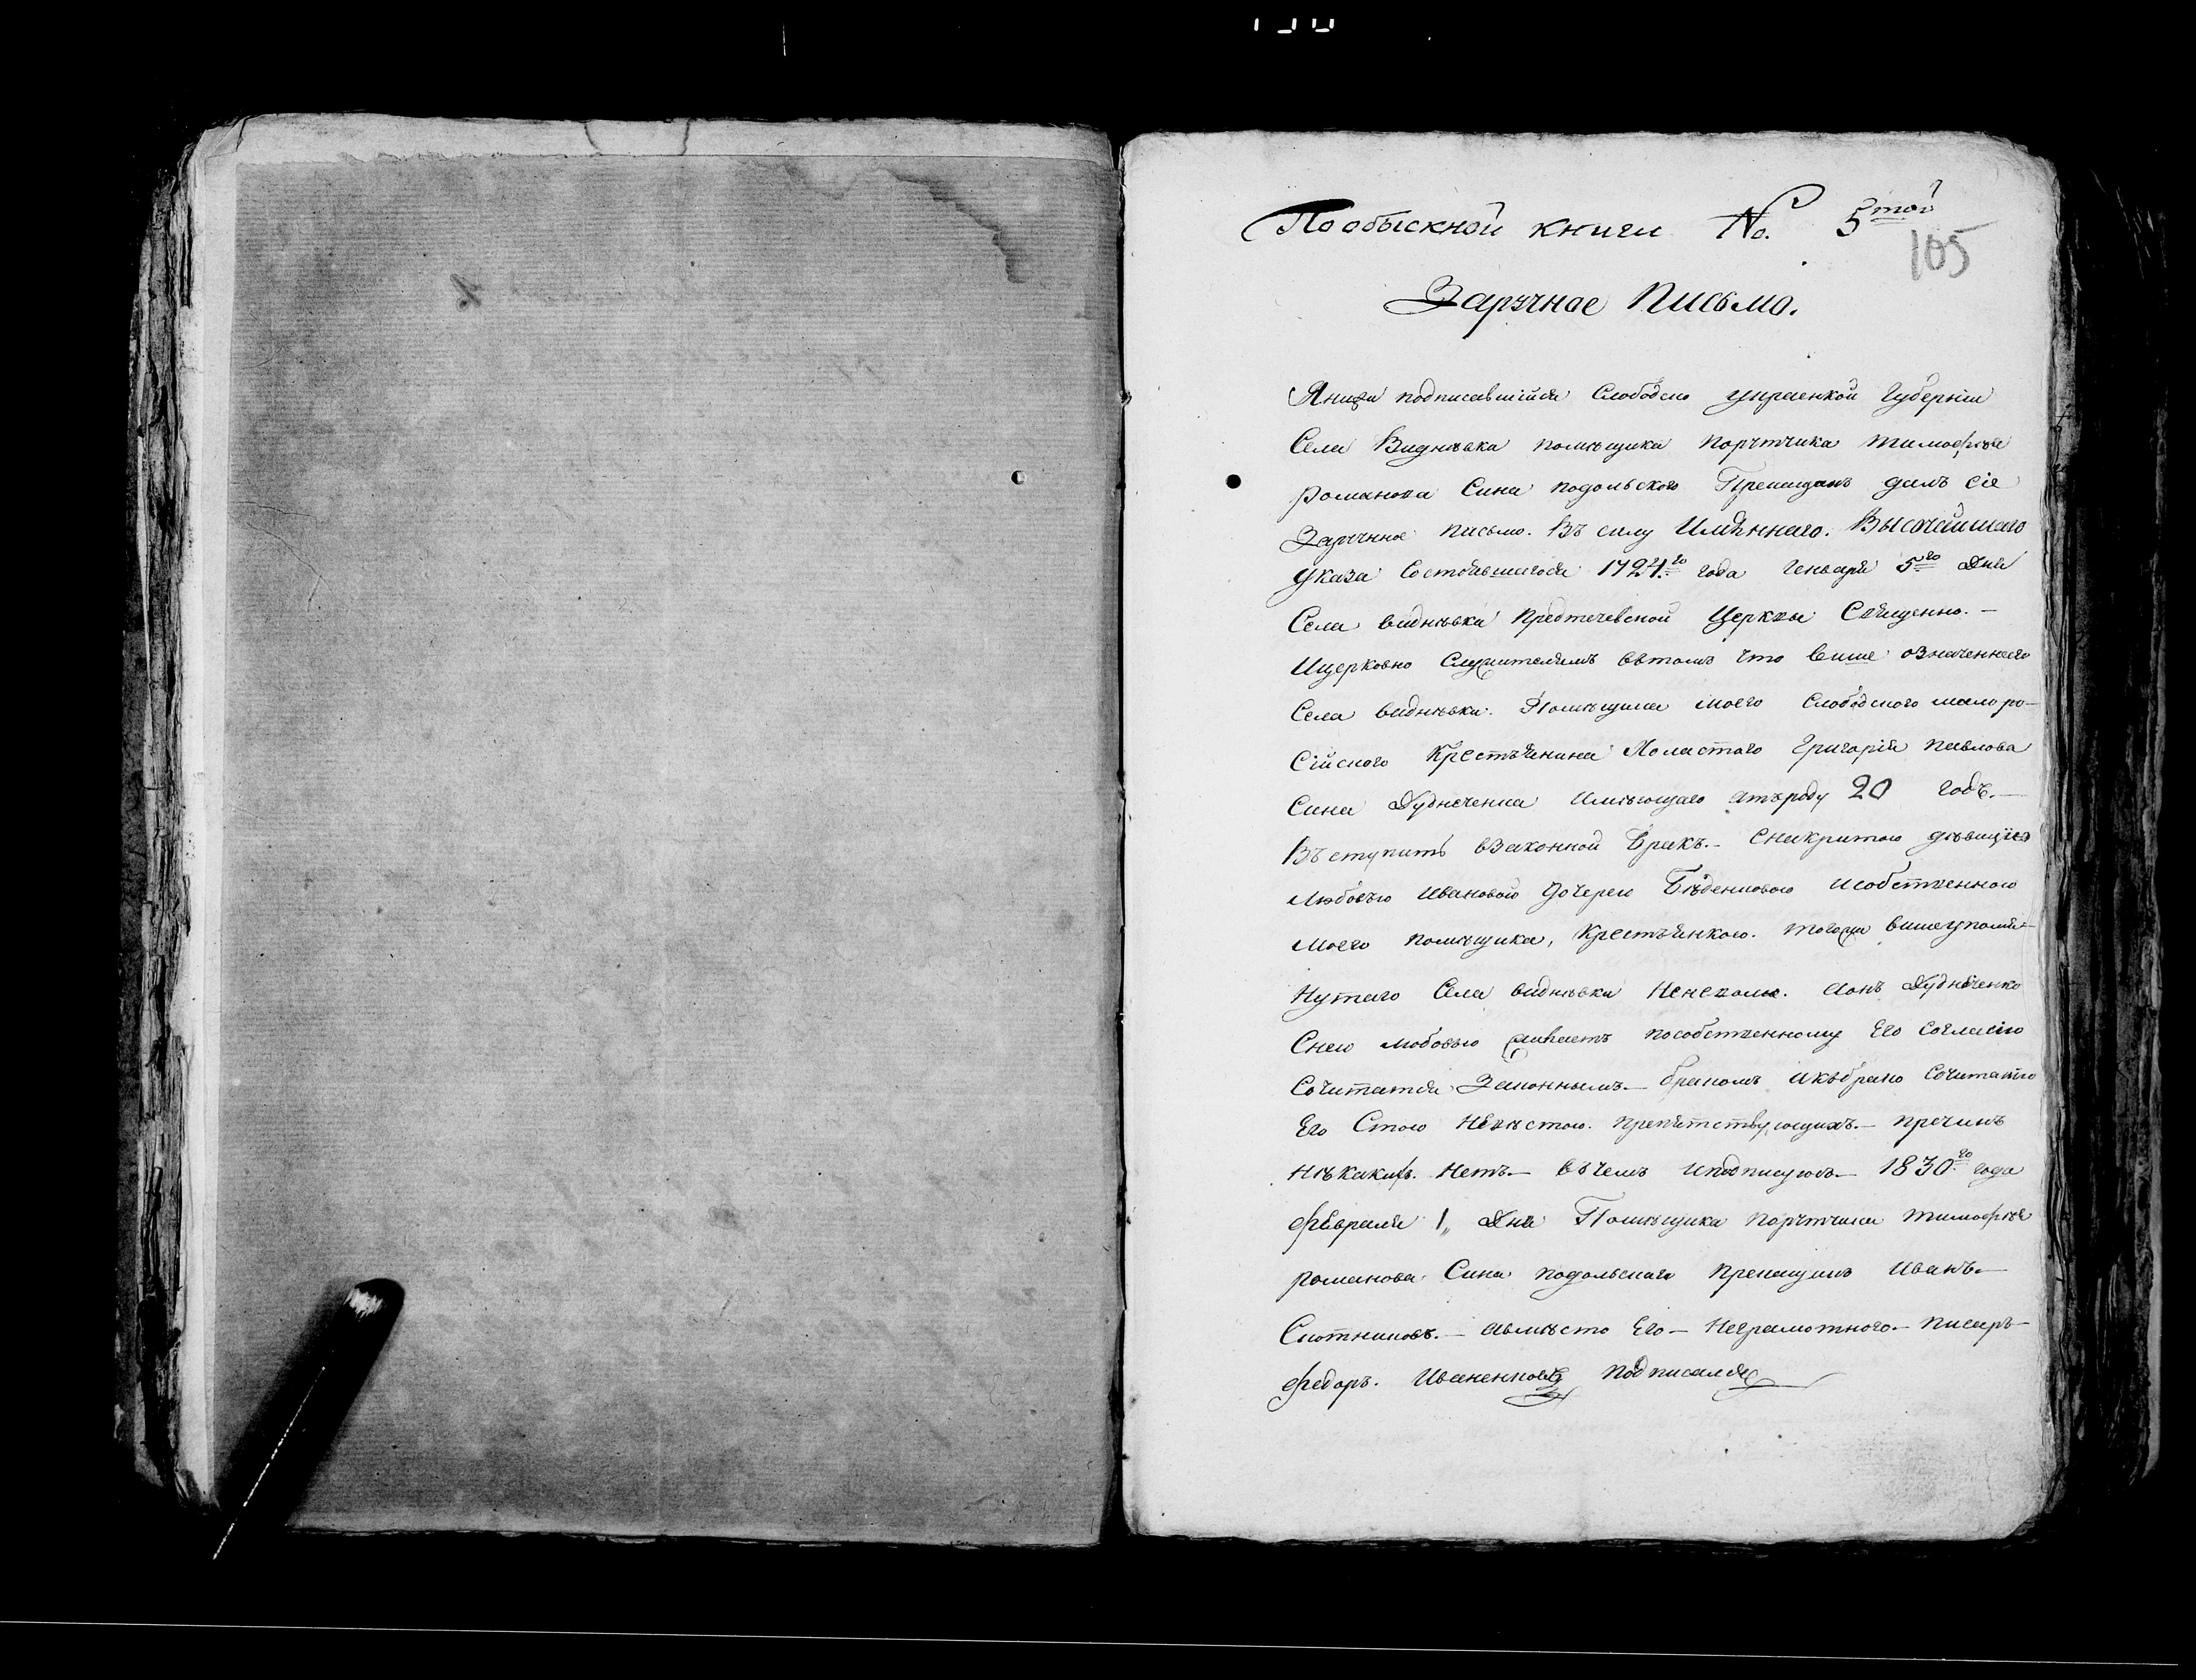 Пообыскной книги No. 5той
105
Заручное Письмо.
Яниже подписавшійся Слободско украенкой Губерніи
Села Виднѣвка помѣщика Порутчика тимофѣя
романова Сина подольского Прекащикъ далъ сіе
Заручное письмо. Въ силу Имѣннаго. Высочайшаго
Указа Состоявшагося 1724го года Генваря 5го Дня
Села виднѣвки Предтечевской Церквы Священно.—
Ицерковно Служителямъ втомъ что више означеннаго
Села виднѣвки. Помѣщика моего Слободского мало ро—
Сійского Крестьянина Холастого Григорія павлова
Сина Дудниченка имѣющаго отъроду 20 годъ.—
Въступить взаконной Бракъ.— Снакритою дѣвицею
Любовъю Ивановою дочерею Бѣденковою исобственною
моего помѣщика, Крестьянкою. тогожъ вишеупомя—
Нутаго Села виднѣвки Неневолю. аонъ Дудниченко
Снею любовью желаетъ пособственному Его Согласію
Сочитатся Законнымъ.— бракомъ икъбрако Сочитанію
Его Стою Невѣстою. препятствующихъ.— пречинъ
нѣкакихъ. Нетъ.— вчемъ иподписуюсь.— 1830го года
февраля 1„ Дня Помѣщика порутчика тимофѣя
романова Сина подольскаго Прекащикъ Иванъ.—
Скотниковъ.— авмѣсто Его— Неграмотного— писаръ—
федоръ. Иваненковъ подписался